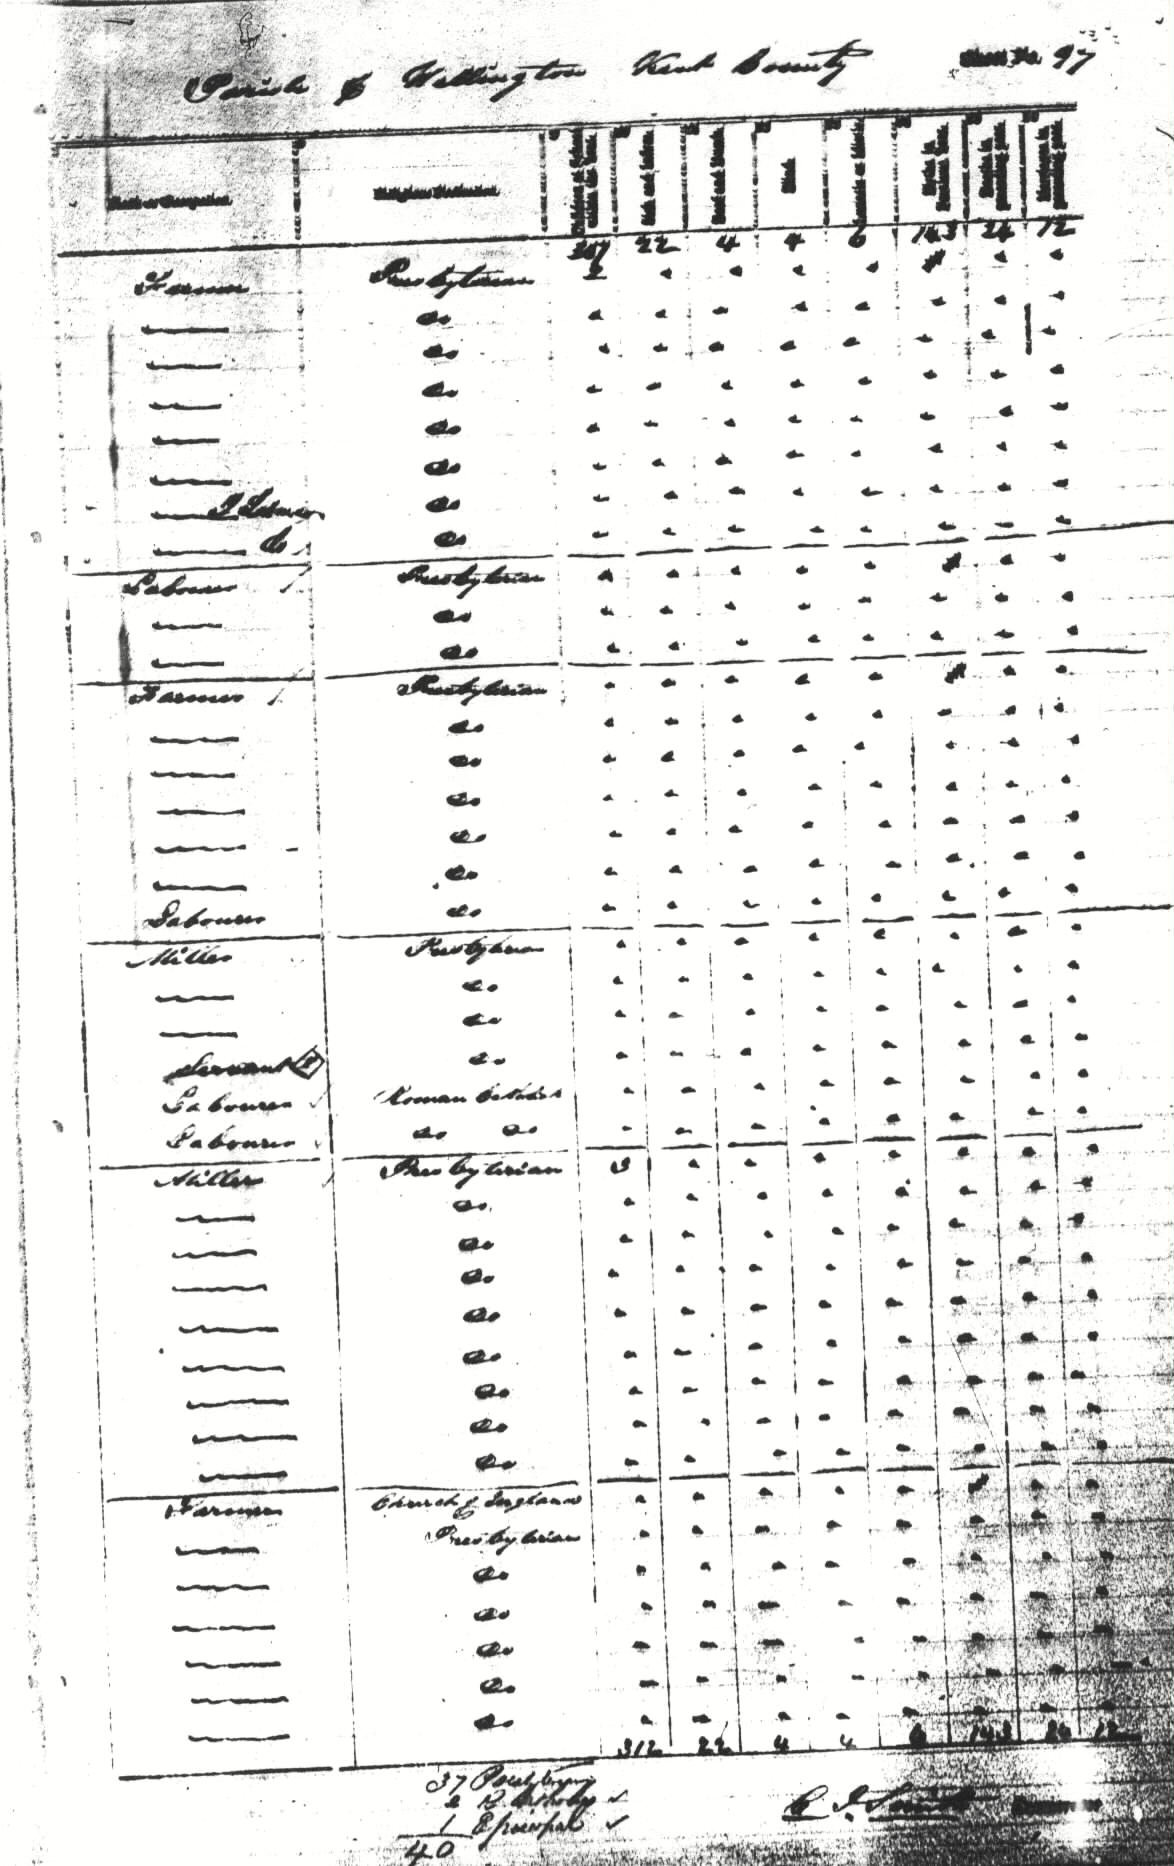 Parish of Wellington Kent County 97
Rank or Occupation. Religious Profession. Sick and Infirm. Deaf and Dumb. Blind.
307 22 4 4 6 143 24 12
Farmer Presbyterian 2
do
do
do
do
do
Labourer do
do do
Labourer Presbyterian
do
do
Farmer Presbyterian
do
do
do
do
do
Labourer do
Miller Presbyterian
do
do
Servant do
Labourer Roman Catholic
Labourer do do
Miller Presbyterian 3
do
do
do
do
do
do
do
do
Farmer Church of England
Presbyterian
do
do
do
do
do
312 22 4 4 6 143 24 12
37 Presbyterian
2 R. Catholic
1 Episcopal
40